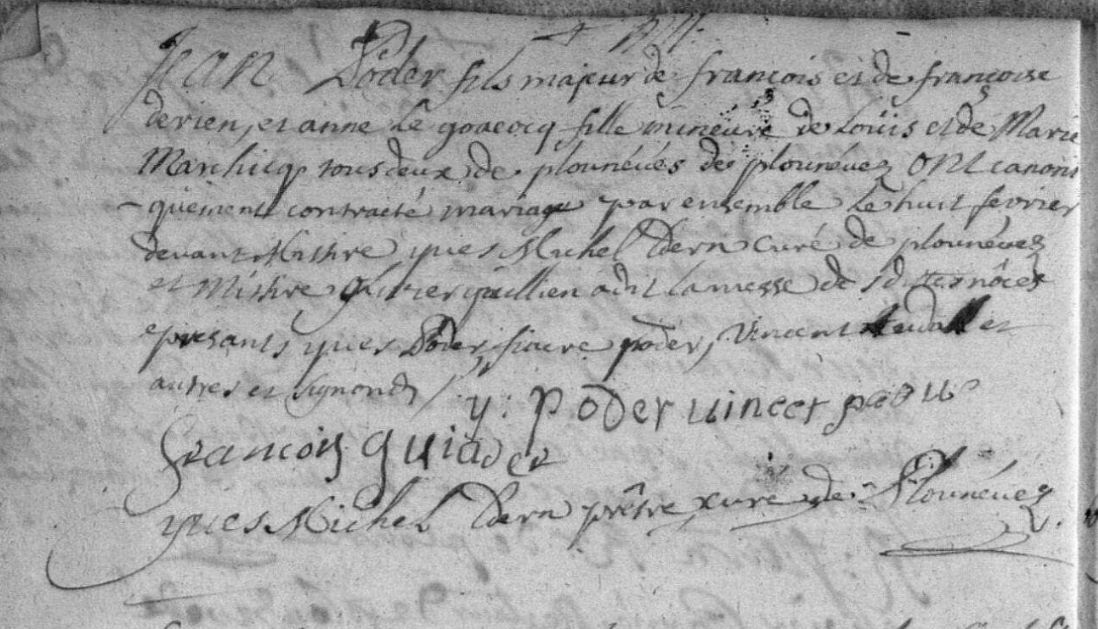 Jean Poder fils majeur de francois et de francoise
derien, et anne Le goacocq fille mineure de Louis et de Marie
Marchicq tous deux de plounéués de plounéuez ont canoni
-quement contracté mariage par ensemble Le huit feurier
deuant Missire yues Michel Dern Curé de plounéuez
et Missire guillien a dit la messe de sdittes nôces
epresants yues Poder, fiacre poder, Vincent et
autres et signonds
y: Poder uincet
francois quiader
yues Michel Dern prêtre xuré de Plounéuez